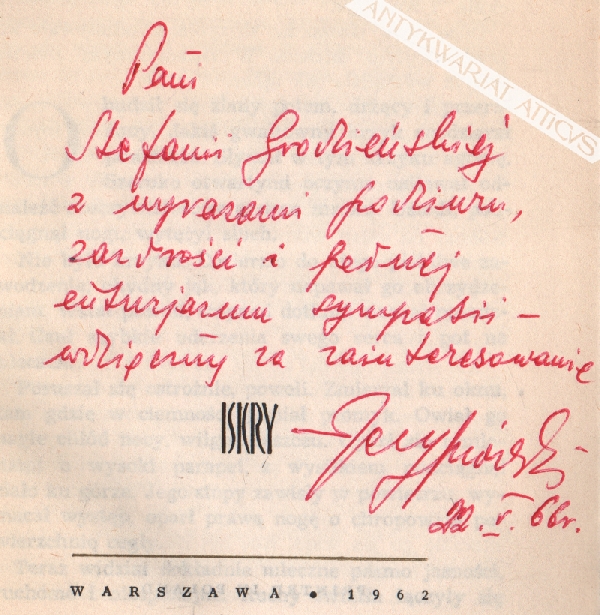 ANTYKWARIAT ATTICVS
Pani
Stefanii Grodzieńskiej
z wyrazami podziwu,
zazdrości i pełnej
entuzjazmu sympatii –
wdzięczny za zainteresowanie
ISKRY
22. V. 66r.
WARSZAWA • 1962